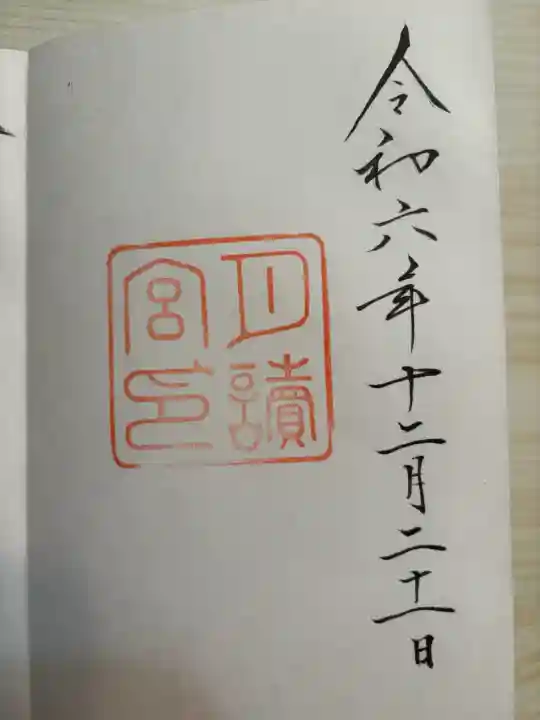 令和六年十二月二十一日
月讀
宮印